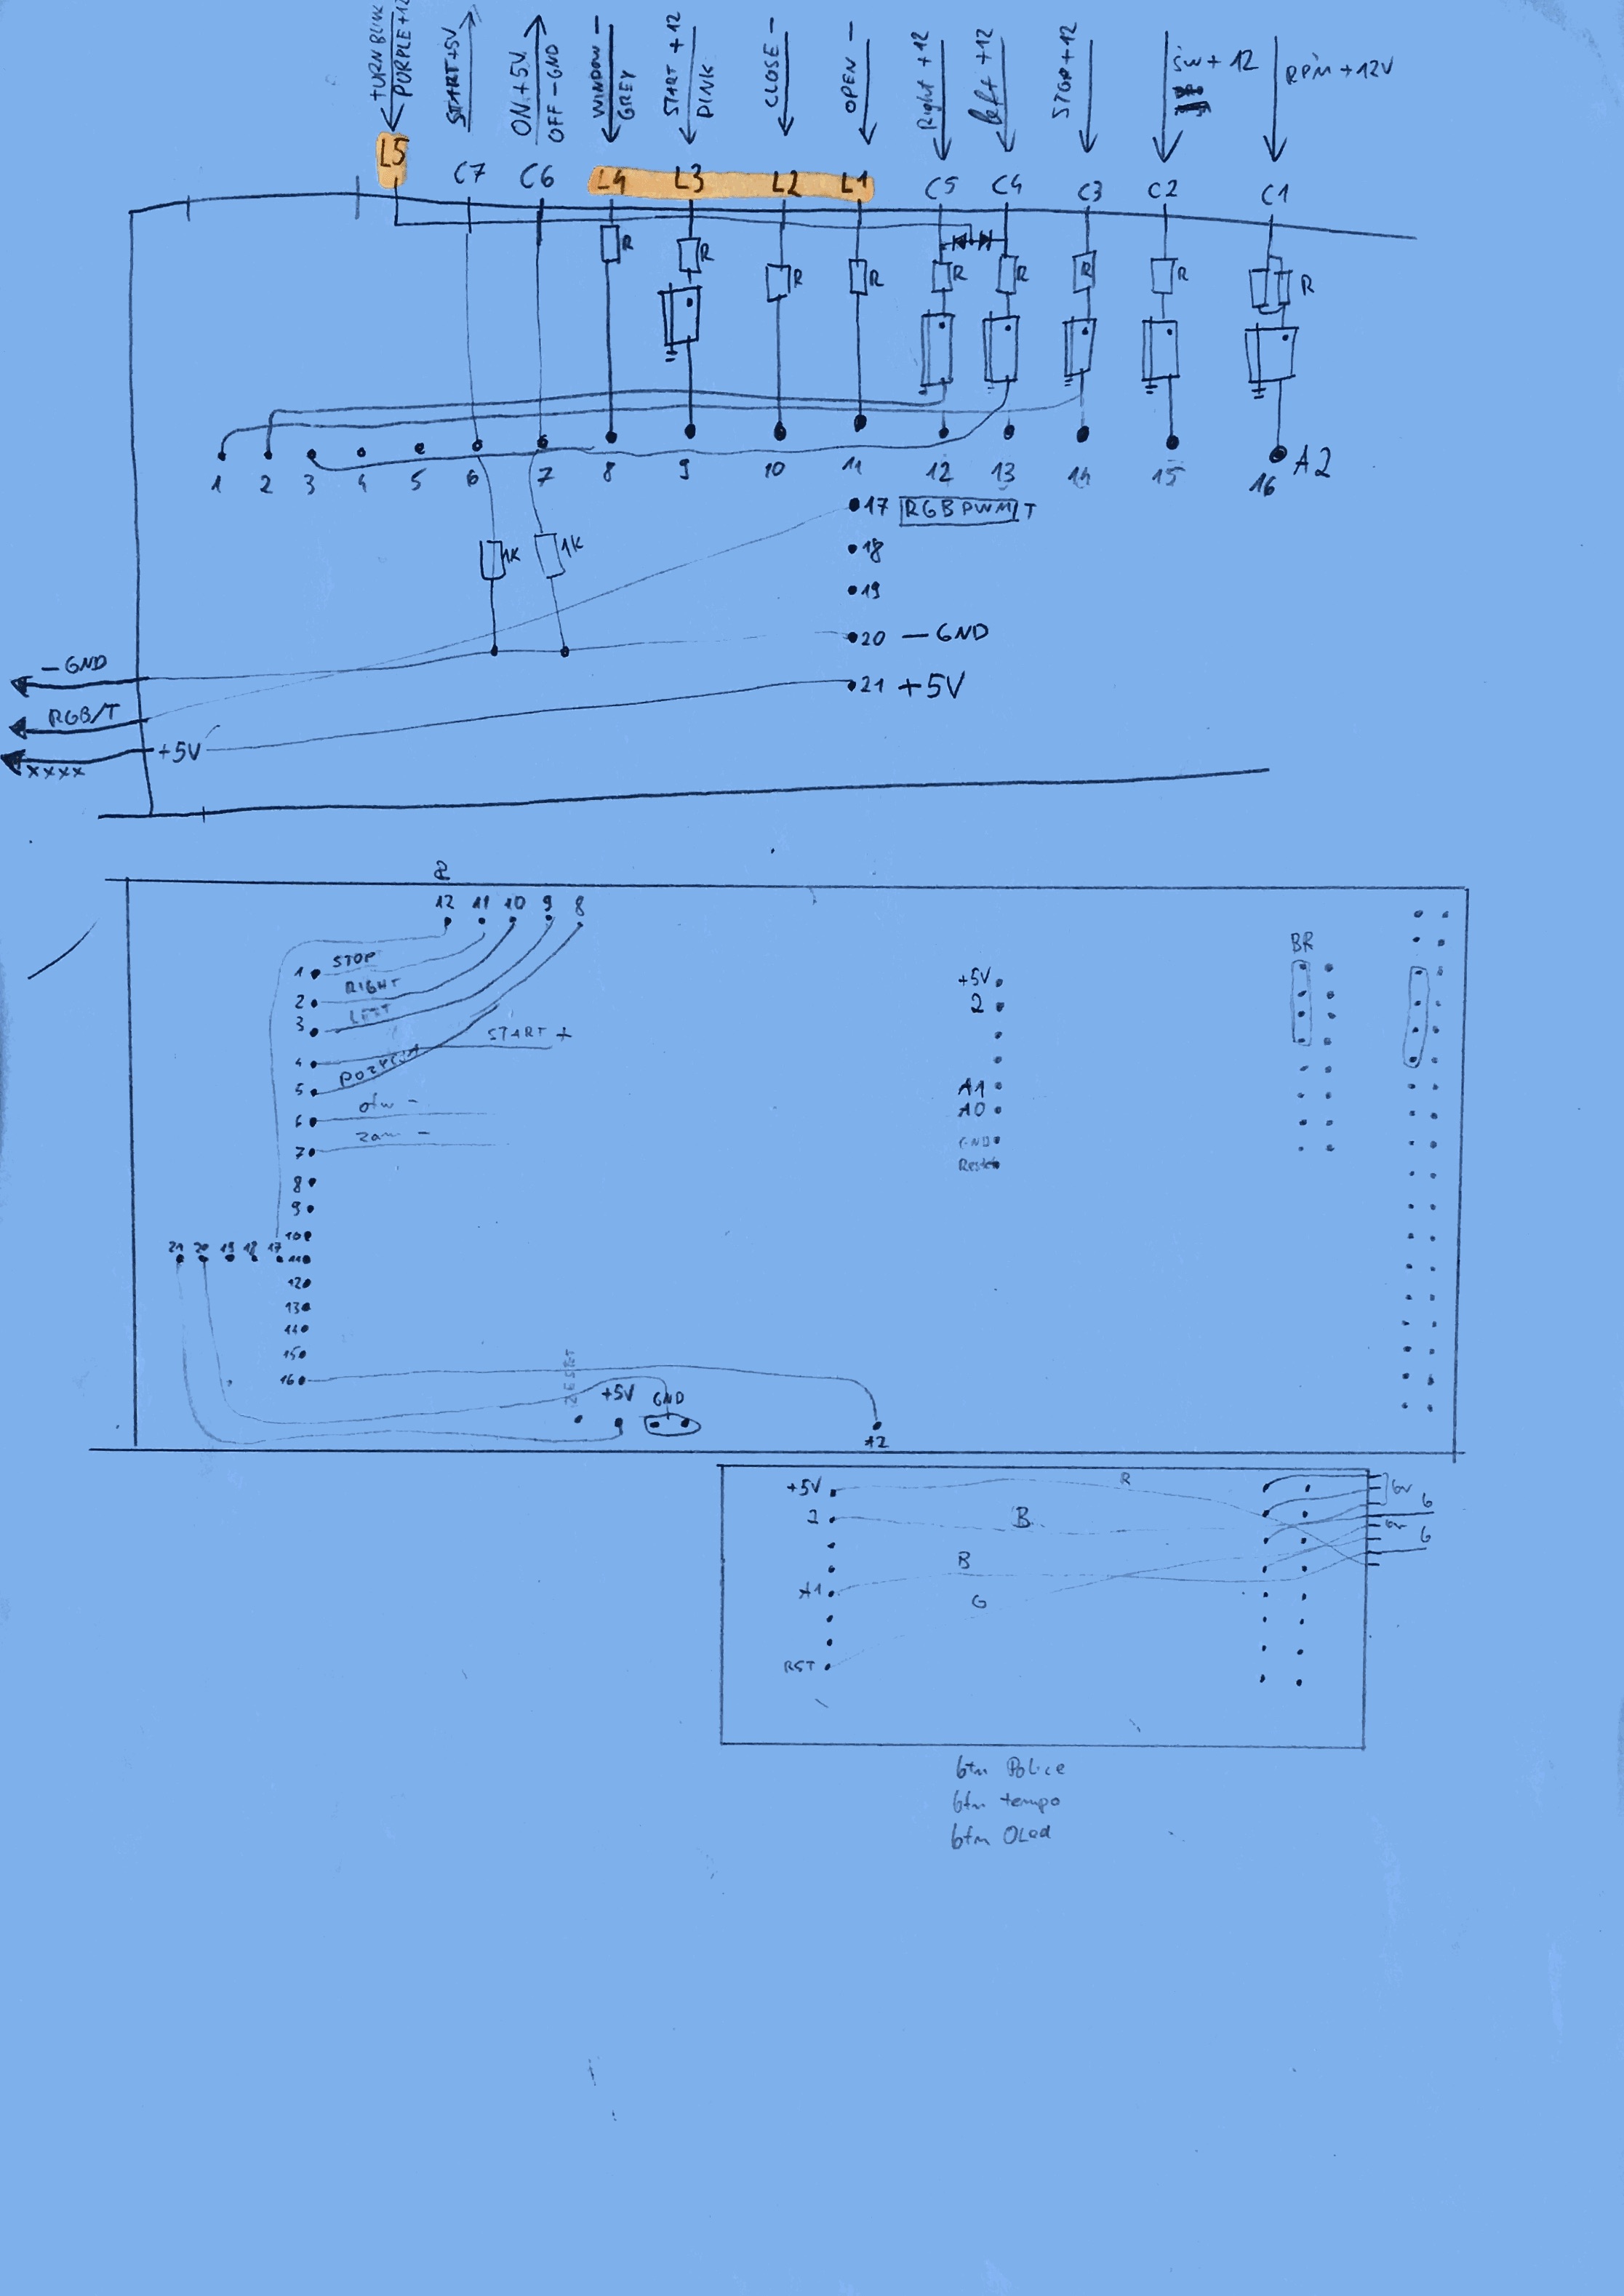 TURN BLINK
PURPLE +12
START +5V
ON +5V
OFF - GND
WINDOW -
GREY
START +12
PINK
CLOSE -
OPEN -
Right +12
left +12
STOP +12
SW + 12
RPM +12V
L5
C7
C6
L4
L3
L2
L1
C5
C4
C3
C2
C1
R
R
R
R
R
R
R
R
R
1
2
3
4
5
6
7
8
9
10
11
12
13
14
15
16
A2
17 RGB PWM/T
18
19
20 - GND
21 +5V
1K
1K
- GND
RGB/T
+5V
xxxx
12
11
10
9
8
1 STOP
2 RIGHT
3 LEFT
4 START +
5 POZYCJA
6 otw -
7 zam -
8
9
10
21
20
19
18
17
11
12
13
14
15
16
RESET
+5V
GND
A2
+5V
2
A1
A0
GND
Reset
BR
+5V
R
2
B
B
A1
G
RST
G
G
btn Police
btn tempo
btn OLed